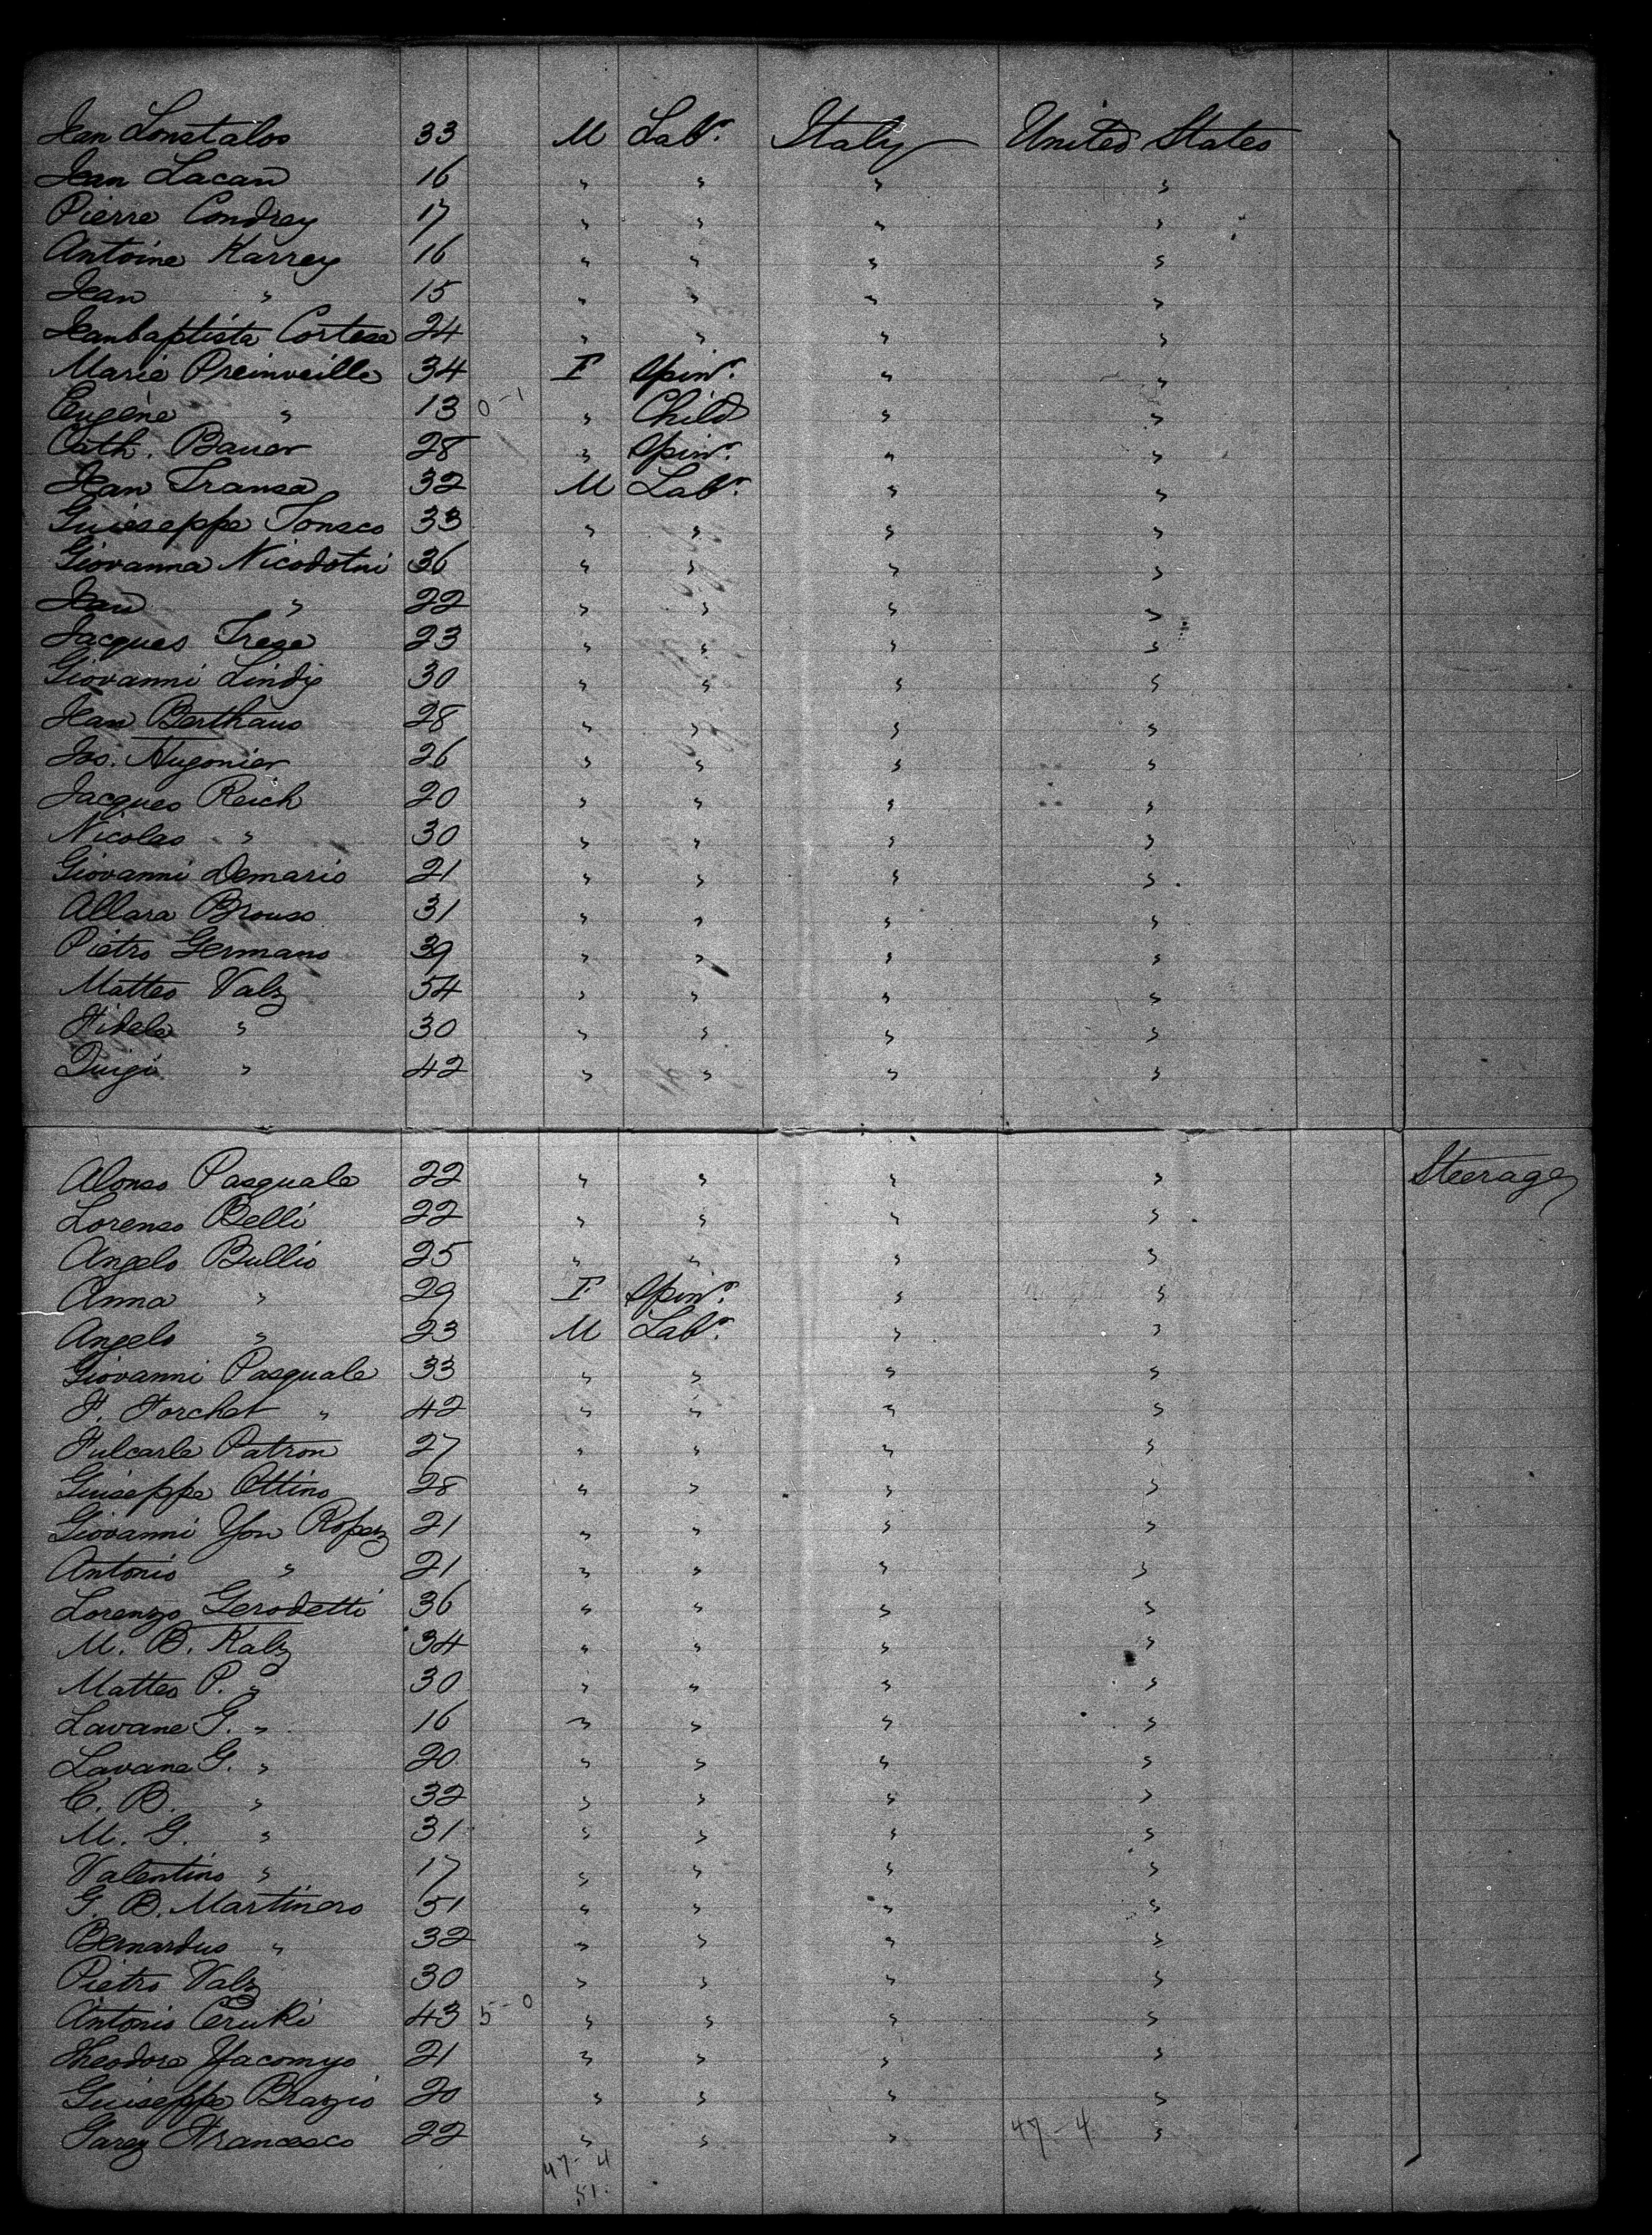 Jean Loustalos 33 M Labr. Italy United States
Jean Lacan 16 " " " "
Pierre Condrey 17 " " " "
Antoine Karrey 16 " " " "
Jean " 15 " " " "
Jeanbaptista Cortese 24 " " " "
Marie Preinveille 34 F Spinr. " "
Eugène " 13 0-1 " Child " "
Cath. Bauer 28 " Spinr. " "
Jean Transa 32 M Labr. " "
Guieseppe Tonsco 33 " " " "
Giovanna Nicodotni 36 " " " "
Jean " 22 " " " "
Jacques Trese 23 " " " "
Giovanni Lindy 30 " " " "
Jean Berthaus 28 " " " "
Jos. Hugonier 26 " " " "
Jacques Reich 20 " " " "
Nicolas " 30 " " " "
Giovanni Demario 21 " " " "
Allara Brouso 31 " " " "
Pietro Germano 39 " " " "
Matteo Valz 54 " " " "
Fidele " 30 " " " "
Luigi " 42 " " " "
Alonso Pasquale 22 " " " " Steerage
Lorenso Belli 22 " " " "
Angelo Bullio 25 " " " "
Anna " 29 F Spinr. " "
Angelo " 23 M Labr. " "
Giovanni Pasquale 33 " " " "
F. Forchet " 42 " " " "
Fulcarle Patron 27 " " " "
Guiseppe Ottino 28 " " " "
Giovanni Yon Ropez 21 " " " "
Antonio " 21 " " " "
Lorenzo Gerodetti 36 " " " "
M. B. Kalz 34 " " " "
Matteo P. " 30 " " " "
Lavane G. " 16 " " " "
Lavane G. " 20 " " " "
C. B. " 32 " " " "
M. G. " 31 " " " "
Valentino " 17 " " " "
G. B. Martinero 51 " " " "
Bernardus " 32 " " " "
Pietro Valz 30 " " " "
Antonio Ceruki 43 5-0 " " " "
Theodore Yacomyo 21 " " " "
Guiseppe Brazio 20 " " " "
Garez Francesco 22 " " " 47-4 "
47-4
51.